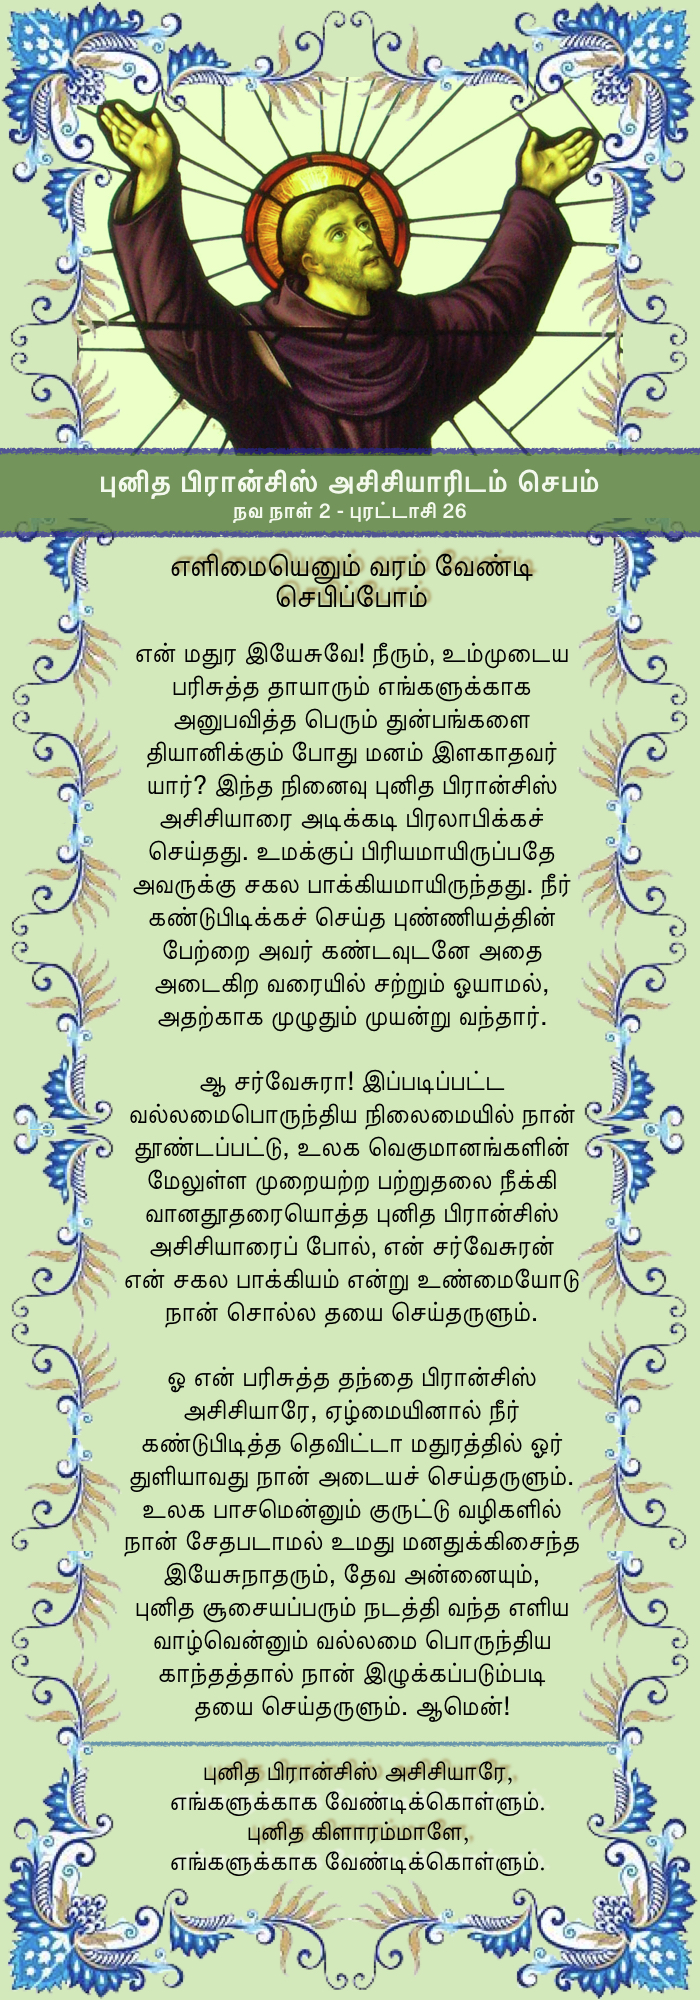 புனித பிரான்சிஸ் அசிசியாரிடம் செபம்
நவ நாள் 2 - புரட்டாசி 26
எளிமையெனும் வரம் வேண்டி
செபிப்போம்
என் மதுர இயேசுவே! நீரும், உம்முடைய
பரிசுத்த தாயாரும் எங்களுக்காக
அனுபவித்த பெரும் துன்பங்களை
தியானிக்கும் போது மனம் இளகாதவர்
யார்? இந்த நினைவு புனித பிரான்சிஸ்
அசிசியாரை அடிக்கடி பிரலாபிக்கச்
செய்தது. உமக்குப் பிரியமாயிருப்பதே
அவருக்கு சகல பாக்கியமாயிருந்தது. நீர்
கண்டுபிடிக்கச் செய்த புண்ணியத்தின்
பேற்றை அவர் கண்டவுடனே அதை
அடைகிற வரையில் சற்றும் ஓயாமல்,
அதற்காக முழுதும் முயன்று வந்தார்.
ஆ சர்வேசுரா! இப்படிப்பட்ட
வல்லமைபொருந்திய நிலைமையில் நான்
தூண்டப்பட்டு, உலக வெகுமானங்களின்
மேலுள்ள முறையற்ற பற்றுதலை நீக்கி
வானதூதரையொத்த புனித பிரான்சிஸ்
அசிசியாரைப் போல், என் சர்வேசுரன்
என் சகல பாக்கியம் என்று உண்மையோடு
நான் சொல்ல தயை செய்தருளும்.
ஓ என் பரிசுத்த தந்தை பிரான்சிஸ்
அசிசியாரே, ஏழ்மையினால் நீர்
கண்டுபிடித்த தெவிட்டா மதுரத்தில் ஓர்
துளியாவது நான் அடையச் செய்தருளும்.
உலக பாசமென்னும் குருட்டு வழிகளில்
நான் சேதபடாமல் உமது மனதுக்கிசைந்த
இயேசுநாதரும், தேவ அன்னையும்,
புனித சூசையப்பரும் நடத்தி வந்த எளிய
வாழ்வென்னும் வல்லமை பொருந்திய
காந்தத்தால் நான் இழுக்கப்படும்படி
தயை செய்தருளும். ஆமென்!
புனித பிரான்சிஸ் அசிசியாரே,
எங்களுக்காக வேண்டிக்கொள்ளும்.
புனித கிளாரம்மாளே,
எங்களுக்காக வேண்டிக்கொள்ளும்.